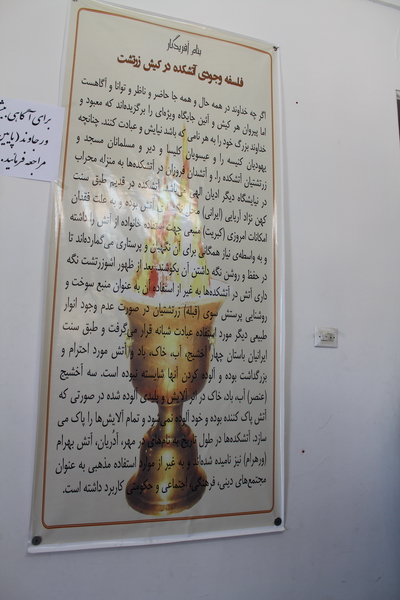 بنام آفریدگار
فلسفه وجودی آتشکده در کیش زرتشت
اگر چه خداوند در همه حال و همه جا حاضر و ناظر و توانا و آگاهست
اما پیروان هر کیش و آئین جایگاه ویژه‌ای را برگزیده‌اند که معبود و
خداوند بزرگ خود را به هر نامی که باشد نیایش و عبادت کنند. چنانچه
یهودیان کنیسه را و عیسویان کلیسا و دیر و مسلمانان مسجد و
زرتشتیان آتشکده را، و آتشدان فروزان در آتشکده‌ها به منزله محراب
در نیایشگاه دیگر ادیان الهی آتشکده در قدیم طبق سنت
کهن نژاد آریایی (ایرانی) آتش بوده و به علت فقدان
امکانات امروزی (کبریت) منبعی جهت خانواده از آتش را داشته
و به واسطه‌ی نیاز همگانی برای آن نگهبان و پرستاری می‌گمارده‌اند تا
در حفظ و روشن نگه داشتن آن بکوشند. بعد از ظهور اشوزرتشت نگه
داری آتش در آتشکده‌ها به غیر از استفاده آن به عنوان منبع سوخت و
روشنایی پرستش سوی (قبله) زرتشتیان در صورت عدم وجود انوار
طبیعی دیگر مورد استفاده عبادت شبانه قرار می‌گرفت و طبق سنت
ایرانیان باستان چهار آخشیج، آب، خاک، باد و آتش مورد احترام و
بزرگداشت بوده و آلوده کردن آنها شایسته نبوده است. سه آخشیج
(عنصر) آب، باد، خاک در اثر آلایش و پلیدی آلوده شده در صورتی که
آتش پاک کننده بوده و خود آلوده نمی‌شود و تمام آلایش‌ها را پاک می
سازد. آتشکده‌ها در طول تاریخ به نام‌های در مهر، آدُریان، آتش بهرام
(ورهرام) نیز نامیده شده‌اند و به غیر از موارد استفاده مذهبی به عنوان
مجتمع‌های دینی، فرهنگی، اجتماعی و حکومتی کاربرد داشته است.
برای آگاهی
ورجاوند (پایین
مراجعه فرمایید.